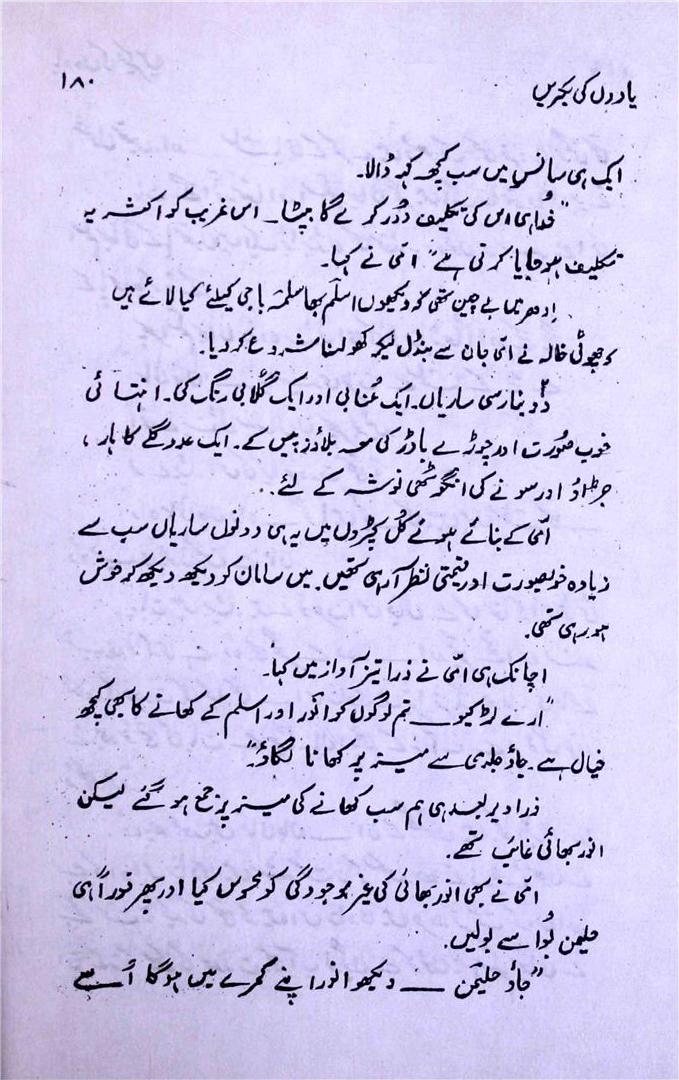 ۱۸۰
یادوں کی بجریں
ایک ہی سانس میں سب کچھ کہہ ڈالا۔
"خدا ہی اس کی تکلیف دور کرے گا بیٹا۔ اس غریب کو اکثر یہ
تکلیف ہو جایا کرتی ہے" امّی نے کہا۔
اِدھر میں بے چین تھی کہ دیکھوں اسلم بھا سلمہ باجی کیلئے کیا لائے ہیں
کہ چھوٹی خالہ نے امّی جان سے بنڈل لیکر کھولنا شروع کر دیا۔
دو بنارسی ساریاں۔ ایک عنابی اور ایک گلابی رنگ کی۔ انتہائی
خوب صورت اور چوڑے باڈر کی معہ بلاؤز پیس کے۔ ایک عدد گلے کا ہار،
جڑاؤ اور سونے کی انگوٹھی نوشہ کے لئے۔۔
امّی کے بنائے ہوئے کُل کپڑوں میں یہ ہی دونوں ساریاں سب سے
زیادہ خوبصورت اور قیمتی نظر آ رہی تھیں۔ میں سامان کر دیکھ دیکھ کر خوش
ہو رہی تھی۔
اچانک ہی امّی نے ذرا تیز آواز میں کہا۔
"ارے لڑکیو ـــ تم لوگوں کو انور اور اسلم کے کھانے کا بھی کچھ
خیال ہے۔ جاؤ جلدی سے میز پر کھانا لگاؤ۔"
ذرا دیر بعد ہی ہم سب کھانے کی میز پر جمع ہو گئے لیکن
انور بھائی غائب تھے۔
امّی نے بھی انور بھائی کی غیر موجودگی کو محسوس کیا اور پھر فوراً ہی
حلیمن بُوا سے بولیں۔
"جاؤ حلیمن ـــ دیکھو انور اپنے کمرے میں ہوگا اُسے